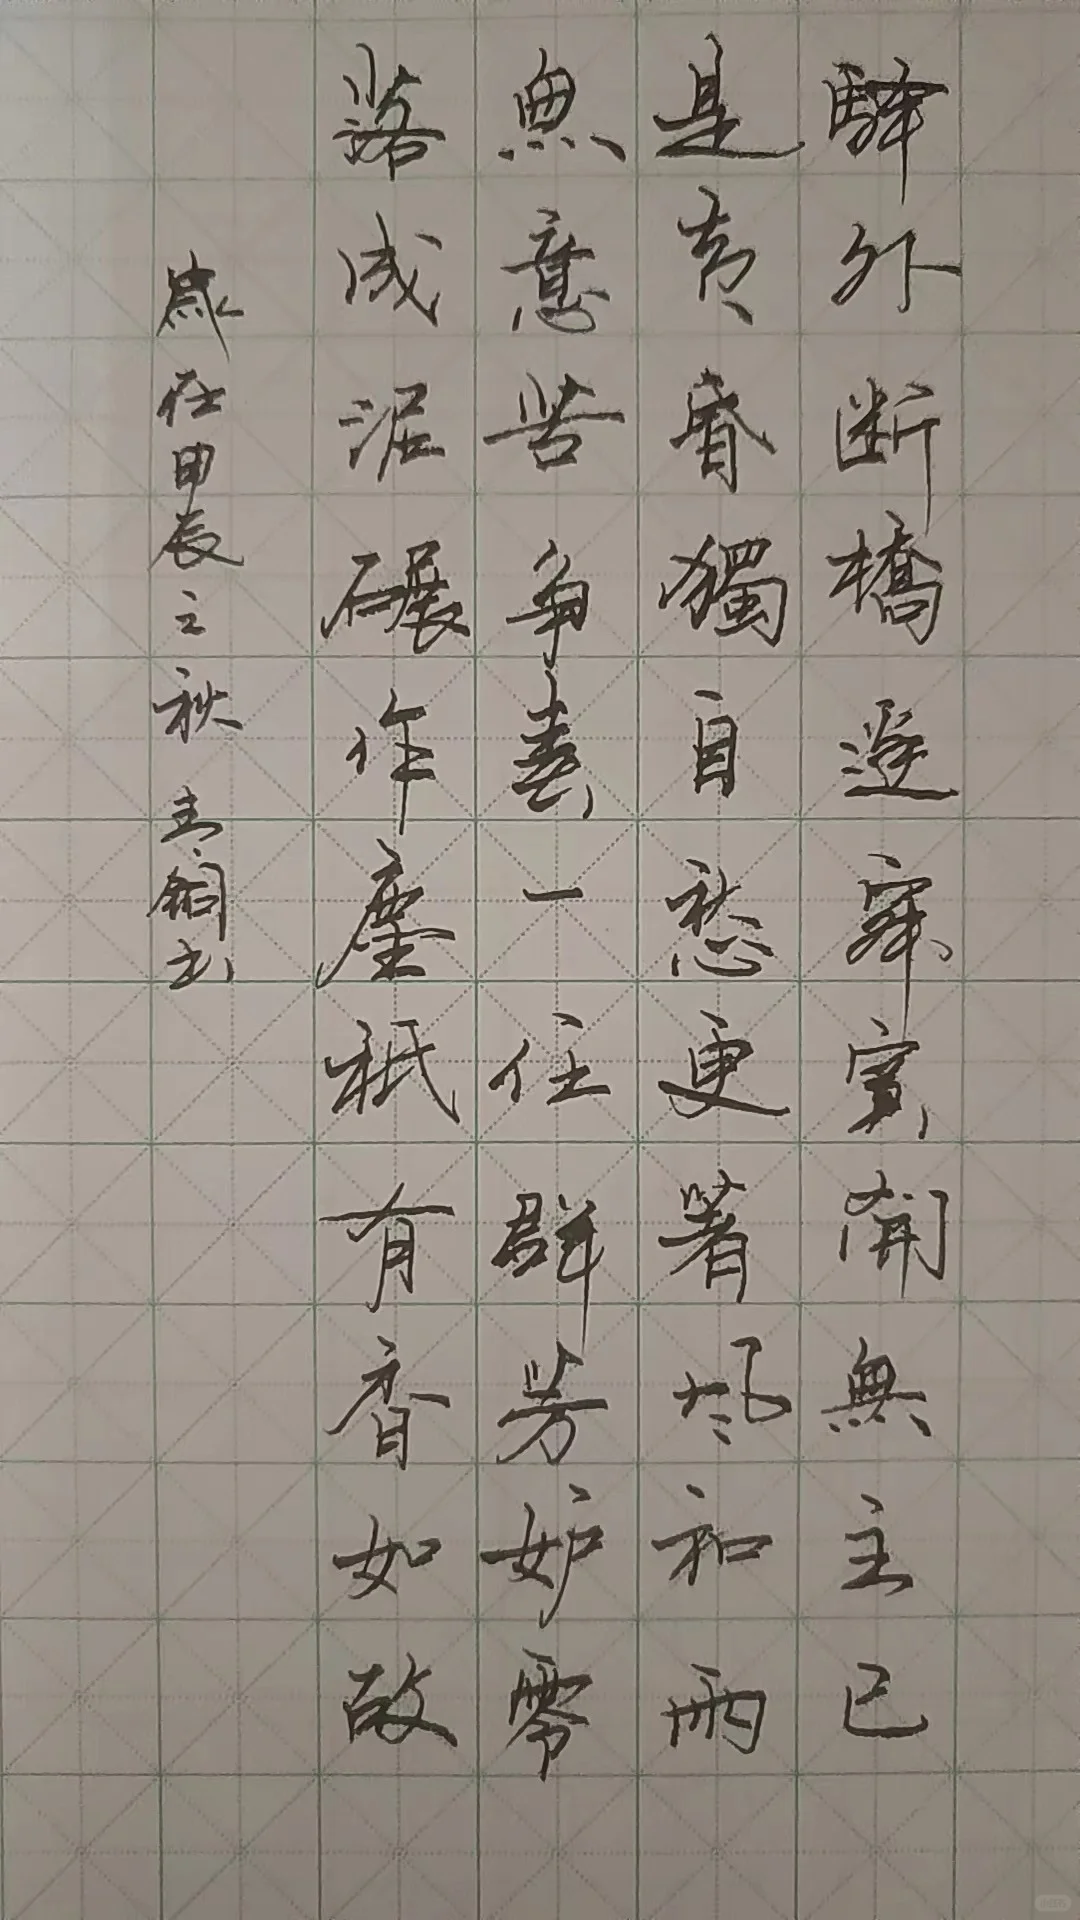 驛外断橋邊寂寞開無主已
是黄昏獨自愁更著風和雨
無意苦争春一任群芳妒零
落成泥碾作塵祇有香如故
歲在甲辰之秋